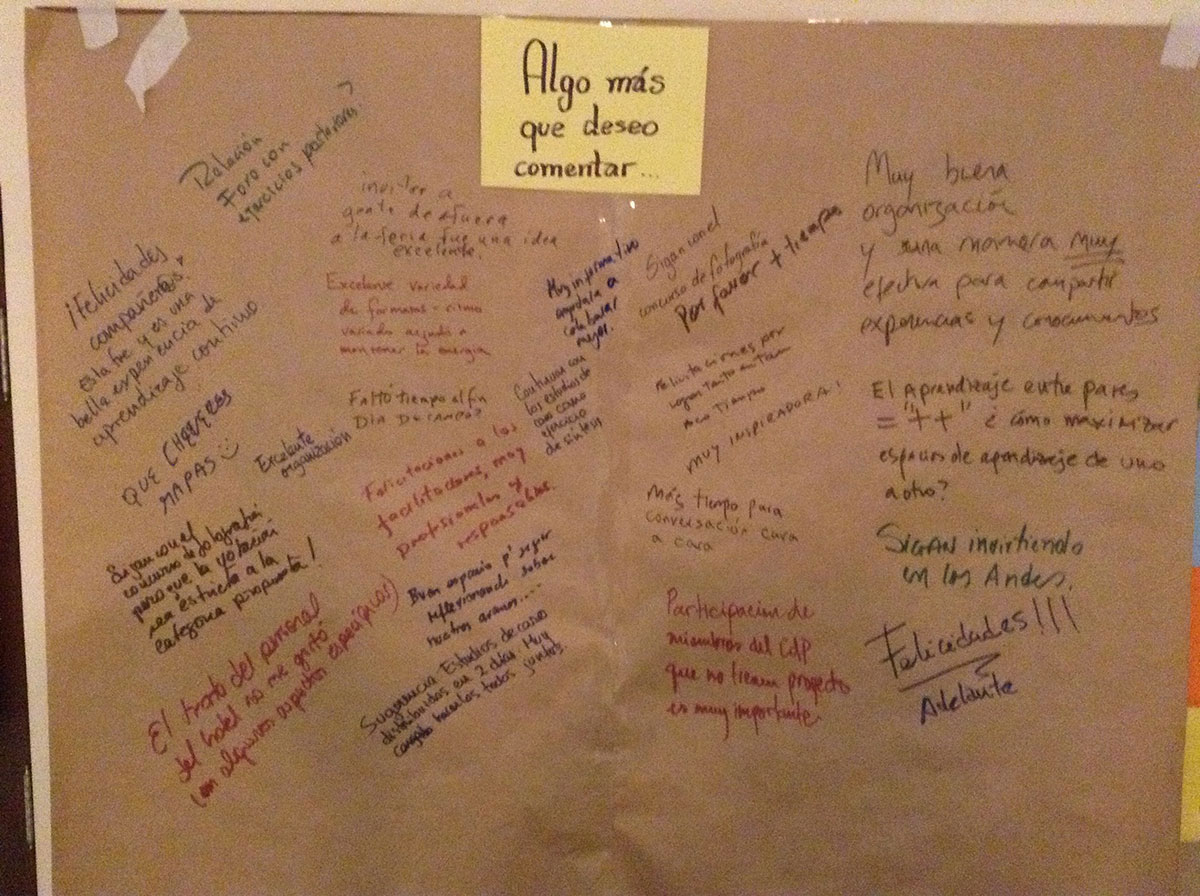 Algo más
que deseo
comentar...
Relación
Foro con
ejercicios posteriores.
invitar a
gente de afuera
a la feria fue una idea
excelente.
¡Felicidades
compañer@s!
Esta fue y es una
bella experiencia de
aprendizaje continuo.
Excelente variedad
de formatos - ritmo
variado ayudó a
mantener la energía
Muy informativo
ayudara a
colaborar
mejor.
Sigan con el
concurso de fotografía
Por favor + tiempo
Muy buena
organización
y una manera muy
efectiva para compartir
experiencias y conocimientos
QUE CHEVERES
MAPAS
Excelente
organización
Faltó tiempo al fin
Día De campo?
Continuar con
los estudios de
caso como
ejercicio
de síntesis
Felicitaciones por
lograr tanto en tan
poco tiempo
MUY INSPIRADORA!
El Aprendizaje entre pares
= "++" ¿ cómo maximizar
espacios de aprendizaje de uno
a otro?
Felicitaciones a los
facilitadores, muy
profesionales y
responsables.
Sigan con el
concurso de fotografía
pero que la votación
sea estricta a la
categoría propuesta!
Más tiempo para
conversación cara
a cara
SIGAN invirtiendo
en los Andes.
Buen espacio p' seguir
reflexionando sobre
nuestros avances....
El trato del personal
del hotel no me gustó
(en algunos aspectos específicos)
Sugerencia Estudios de caso
distribuidos en 2 días. Muy
cargado hacerlos todos juntos.
Participación de
miembros del CdP
que no tienen proyecto
es muy importante.
Felicidades!!!
Adelante